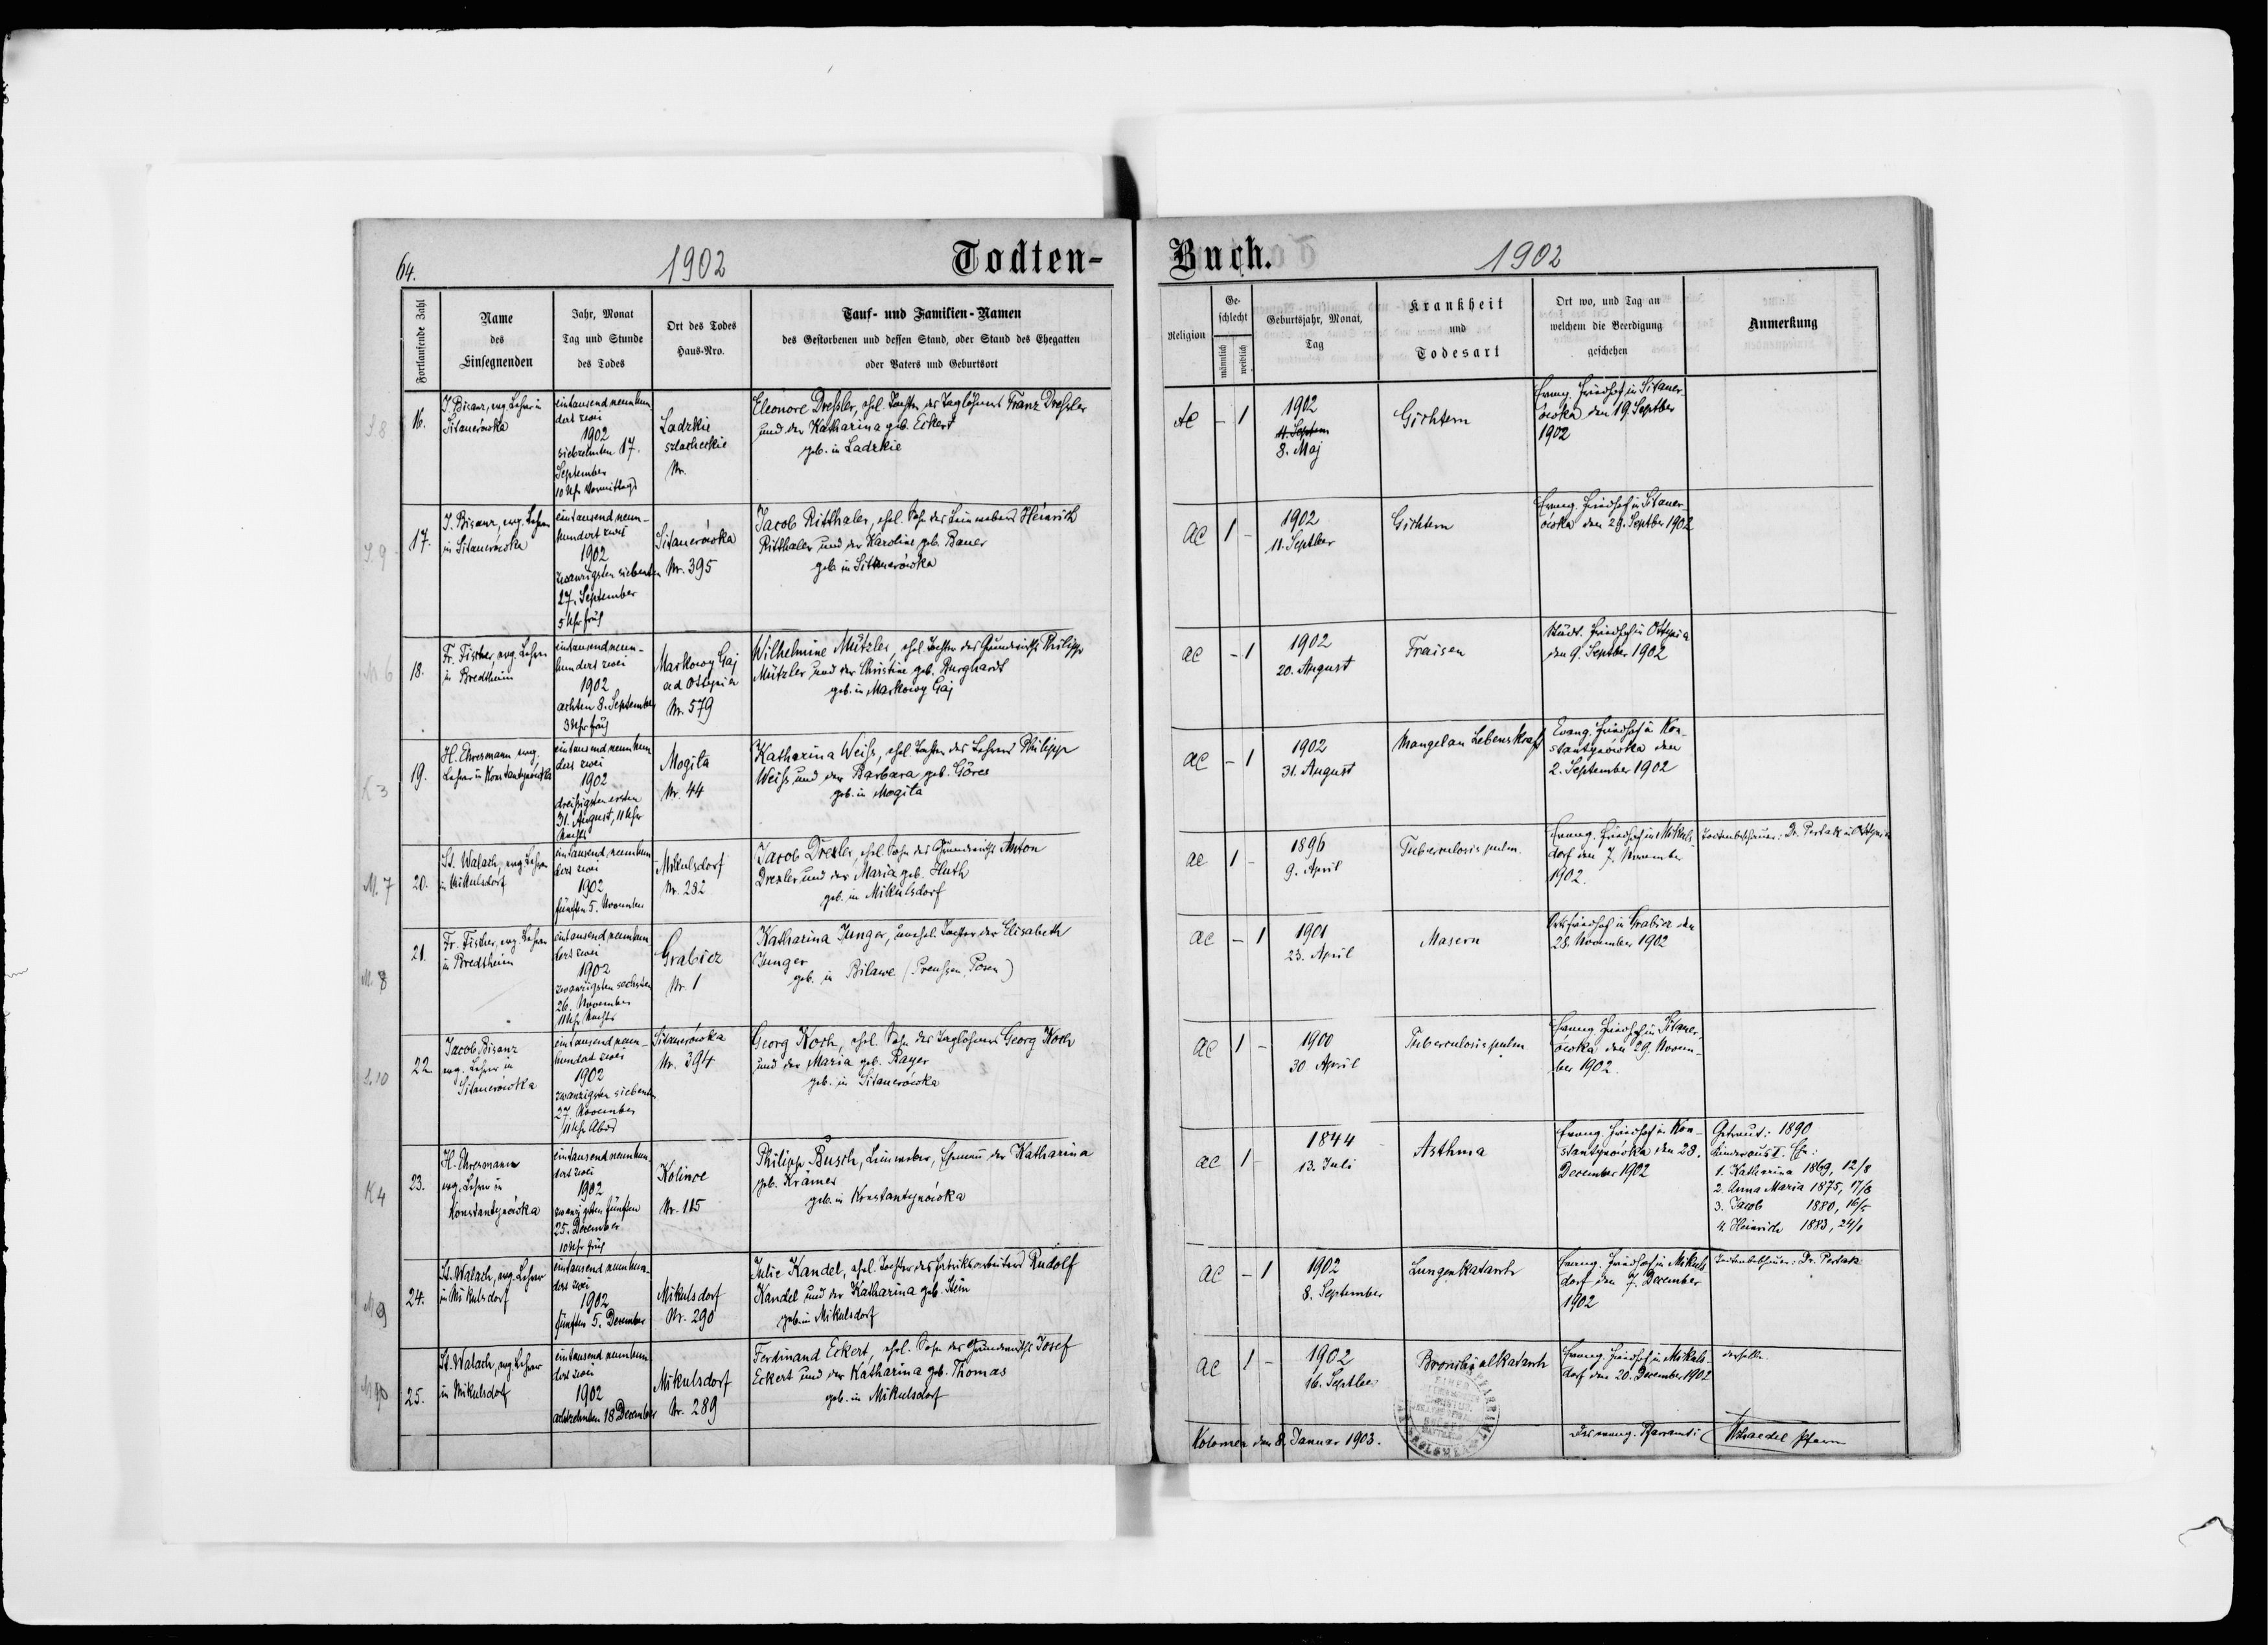 64.
1902
Todten-
Fortlaufende Zahl
Name
des
Einsegnenden
Jahr, Monat
Tag und Stunde
des Todes
Ort des Todes
Haus-Nro.
Tauf- und Familien-Namen
des Gestorbenen und dessen Stand, oder Stand des Ehegatten
oder Vaters und Geburtsort
S 8
16.
J. Bisanz, evg. Lehrer in
Sitauerówka
eintausend neunhun
dert zwei
1902
siebzehnten 17.
September
10 Uhr Vormittags
Ladzkie
szlacheckie
Nr.
Eleonore Dressler, ehel. Tochter des Taglöhners Franz Dressler
und der Katharina geb. Eckert
geb. in Ladzkie
S. 9
17.
J. Bisanz, evg. Lehrer
in Sitauerówka
eintausend neun-
hundert zwei
1902
zwanzigsten siebenten
27. September
5 Uhr früh
Sitauerówka
Nr. 395
Jacob Ritthaler, ehel. Sohn des Leinwebers Heinrich
Ritthaler und der Karoline geb. Bauer
geb. in Sitauerówka
M 6
18.
Fr. Fischer, evg. Lehrer
in Bredtheim
eintausend neun-
hundert zwei
1902
achten 8. September
3 Uhr früh
Markowy Gaj
ad Ottynia
Nr. 579
Wilhelmine Mützler, ehel. Tochter des Grundwirths Philipp
Mützler und der Christine geb. Burghardt
geb. in Markowy Gaj
K 3
19.
H. Ehresmann evg.
Lehrer in Konstantynówka
eintausend neunhun
dert zwei
1902
dreißigsten ersten
31. August, 11 Uhr
Nachts
Mogila
Nr. 44
Katharina Weiss, ehel. Tochter des Lehrers Philipp
Weiss und der Barbara geb. Göres
geb. in Mogila
M. 7
20.
St. Walach, evg. Lehrer
in Mikulsdorf
eintausend, neunhun
dert zwei
1902
fünften 5. November
Mikulsdorf
Nr. 282
Jacob Drexler, ehel. Sohn des Grundwirths Anton
Drexler und der Maria geb. Huth
geb. in Mikulsdorf
M. 8
21.
Fr. Fischer, evg. Lehrer
in Bredtheim
eintausend neunhun
dert zwei
1902
zwanzigsten sechsten
26. November
11 Uhr Nachts
Grabicz
Nr. 1
Katharina Junger, unehel. Tochter der Elisabeth
Junger
geb. in Bilawe (Preußen, Posen)
S. 10
22
Jacob Bisanz
evg. Lehrer in
Sitauerówka
eintausend neun-
hundert zwei
1902
zwanzigsten siebenten
27. November
11 Uhr Abds
Sitauerówka
Nr. 394
Georg Koch, ehel. Sohn des Taglöhners Georg Koch
und der Maria geb. Bayer
geb. in Sitauerówka
K 4
23.
H. Ehresmann
evg. Lehrer in
Konstantynówka
eintausend neunhun-
dert zwei
1902
zwanzigsten fünften
25. December
10 Uhr früh
Kolince
Nr. 115
Philipp Busch, Leinweber, Ehemann der Katharina
geb. Krämer
geb. in Konstantynówka
M 9
24.
St. Walach, evg. Lehrer
in Mikulsdorf
eintausend neunhun-
dert zwei
1902
fünften 5. December
Mikulsdorf
Nr. 290
Julie Kandel, ehel. Tochter des Fabriksarbeiters Rudolf
Kandel und der Katharina geb. Stein
geb. in Mikulsdorf
M 10
25.
St. Walach, evg. Lehrer
in Mikulsdorf
eintausend neunhun
dert zwei
1902
achtzehnten 18 December
Mikulsdorf
Nr. 289
Ferdinand Eckert, ehel. Sohn des Grundwirths Josef
Eckert und der Katharina geb. Thomas
geb. in Mikulsdorf
Buch.
1902
Religion
Ge-
schlecht
männlich
weiblich
Geburtsjahr, Monat,
Tag
Krankheit
und
Todesart
Ort wo, und Tag an
welchem die Beerdigung
geschehen
Anmerkung
AC
-
1
1902
11. Septem
8. Maj
Gichtern
Evang. Friedhof in Sitauer-
ówka den 19. Septber
1902
AC
1
-
1902
11. Septber
Gichtern
Evang. Friedhof in Sitauer-
ówka den 29. Septber 1902
AC
-
1
1902
20. August
Fraisen
Städt. Friedhof in Ottynia
den 9. Septber 1902
AC
-
1
1902
31. August
Mangel an Lebenskraft
Evang. Friedhof in Kon-
stantynówka den
2. September 1902
AC
1
-
1896
9. April
Tuberculosis pulm.
Evang. Friedhof in Mikuls-
dorf den 7. November
1902.
Todtenbeschauer: Dr. Perlak in Ottynia
AC
-
1
1901
23. April
Masern
Ortsfriedhof in Grabicz den
28. November 1902
AC
1
-
1900
30 April
Tuberculosis pulm
Evang. Friedhof in Sitauer-
ówka den 29. Novem-
ber 1902.
AC
1
-
1844
13. Juli
Asthma
Evang. Friedhof in Kon-
stantynówka den 28.
December 1902
Getraut: 1890
Kinder aus I. Ehe:
1. Katharina 1869, 12/8
2. Anna Maria 1875, 17/8
3. Jacob 1880, 16/5
4. Heinrich 1883, 24/1
AC
-
1
1902
8. September
Lungenkatarrh
Evang. Friedhof in Mikuls
dorf den 7. December
1902
Todtenbeschauer: Dr. Perlak
AC
1
-
1902
16. Septber
Bronchialkatarrh
Evang. Friedhof in Mikuls-
dorf den 20. December 1902
derselbe.
Kolomea den 8. Januar 1903.
PFARRAMT
KOLOMEA
Das evang. Pfarramt:
Pfarrer